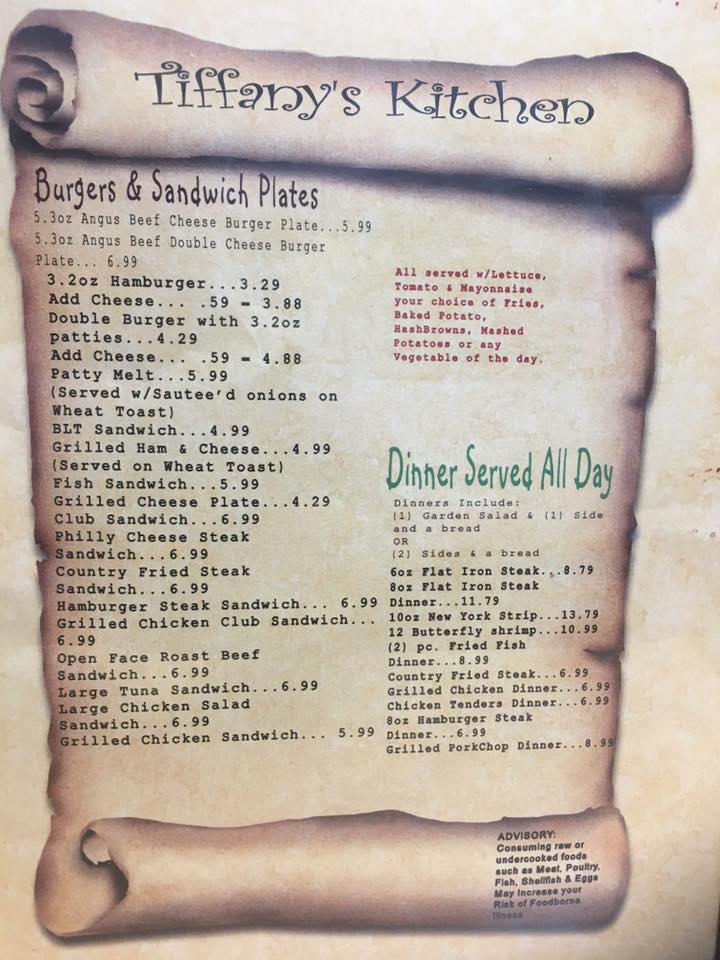 Tiffany's Kitchen
Burgers & Sandwich Plates
5.3oz Angus Beef Cheese Burger Plate...5.99
5.3oz Angus Beef Double Cheese Burger
Plate... 6.99
3.2oz Hamburger...3.29
Add Cheese... .59 = 3.88
Double Burger with 3.2oz
patties...4.29
Add Cheese... .59 = 4.88
Patty Melt...5.99
(Served w/Sautee'd onions on
Wheat Toast)
BLT Sandwich...4.99
Grilled Ham & Cheese...4.99
(Served on Wheat Toast)
Fish Sandwich...5.99
Grilled Cheese Plate...4.29
Club Sandwich...6.99
Philly Cheese Steak
Sandwich...6.99
Country Fried Steak
Sandwich...6.99
Hamburger Steak Sandwich... 6.99
Grilled Chicken Club Sandwich...
6.99
Open Face Roast Beef
Sandwich...6.99
Large Tuna Sandwich...6.99
Large Chicken Salad
Sandwich...6.99
Grilled Chicken Sandwich... 5.99
All served w/Lettuce,
Tomato & Mayonnaise
your choice of Fries,
Baked Potato,
HashBrowns, Mashed
Potatoes or any
Vegetable of the day.
Dinner Served All Day
Dinners Include:
(1) Garden Salad & (1) Side
and a bread
OR
(2) Sides & a bread
6oz Flat Iron Steak...8.79
8oz Flat Iron Steak
Dinner...11.79
10oz New York Strip...13.79
12 Butterfly shrimp...10.99
(2) pc. Fried Fish
Dinner...8.99
Country Fried Steak...6.99
Grilled Chicken Dinner...6.99
Chicken Tenders Dinner...6.99
8oz Hamburger Steak
Dinner...6.99
Grilled PorkChop Dinner...8.99
ADVISORY:
Consuming raw or
undercooked foods
such as Meat, Poultry,
Fish, Shellfish & Eggs
May Increase your
Risk of Foodborne
Illness